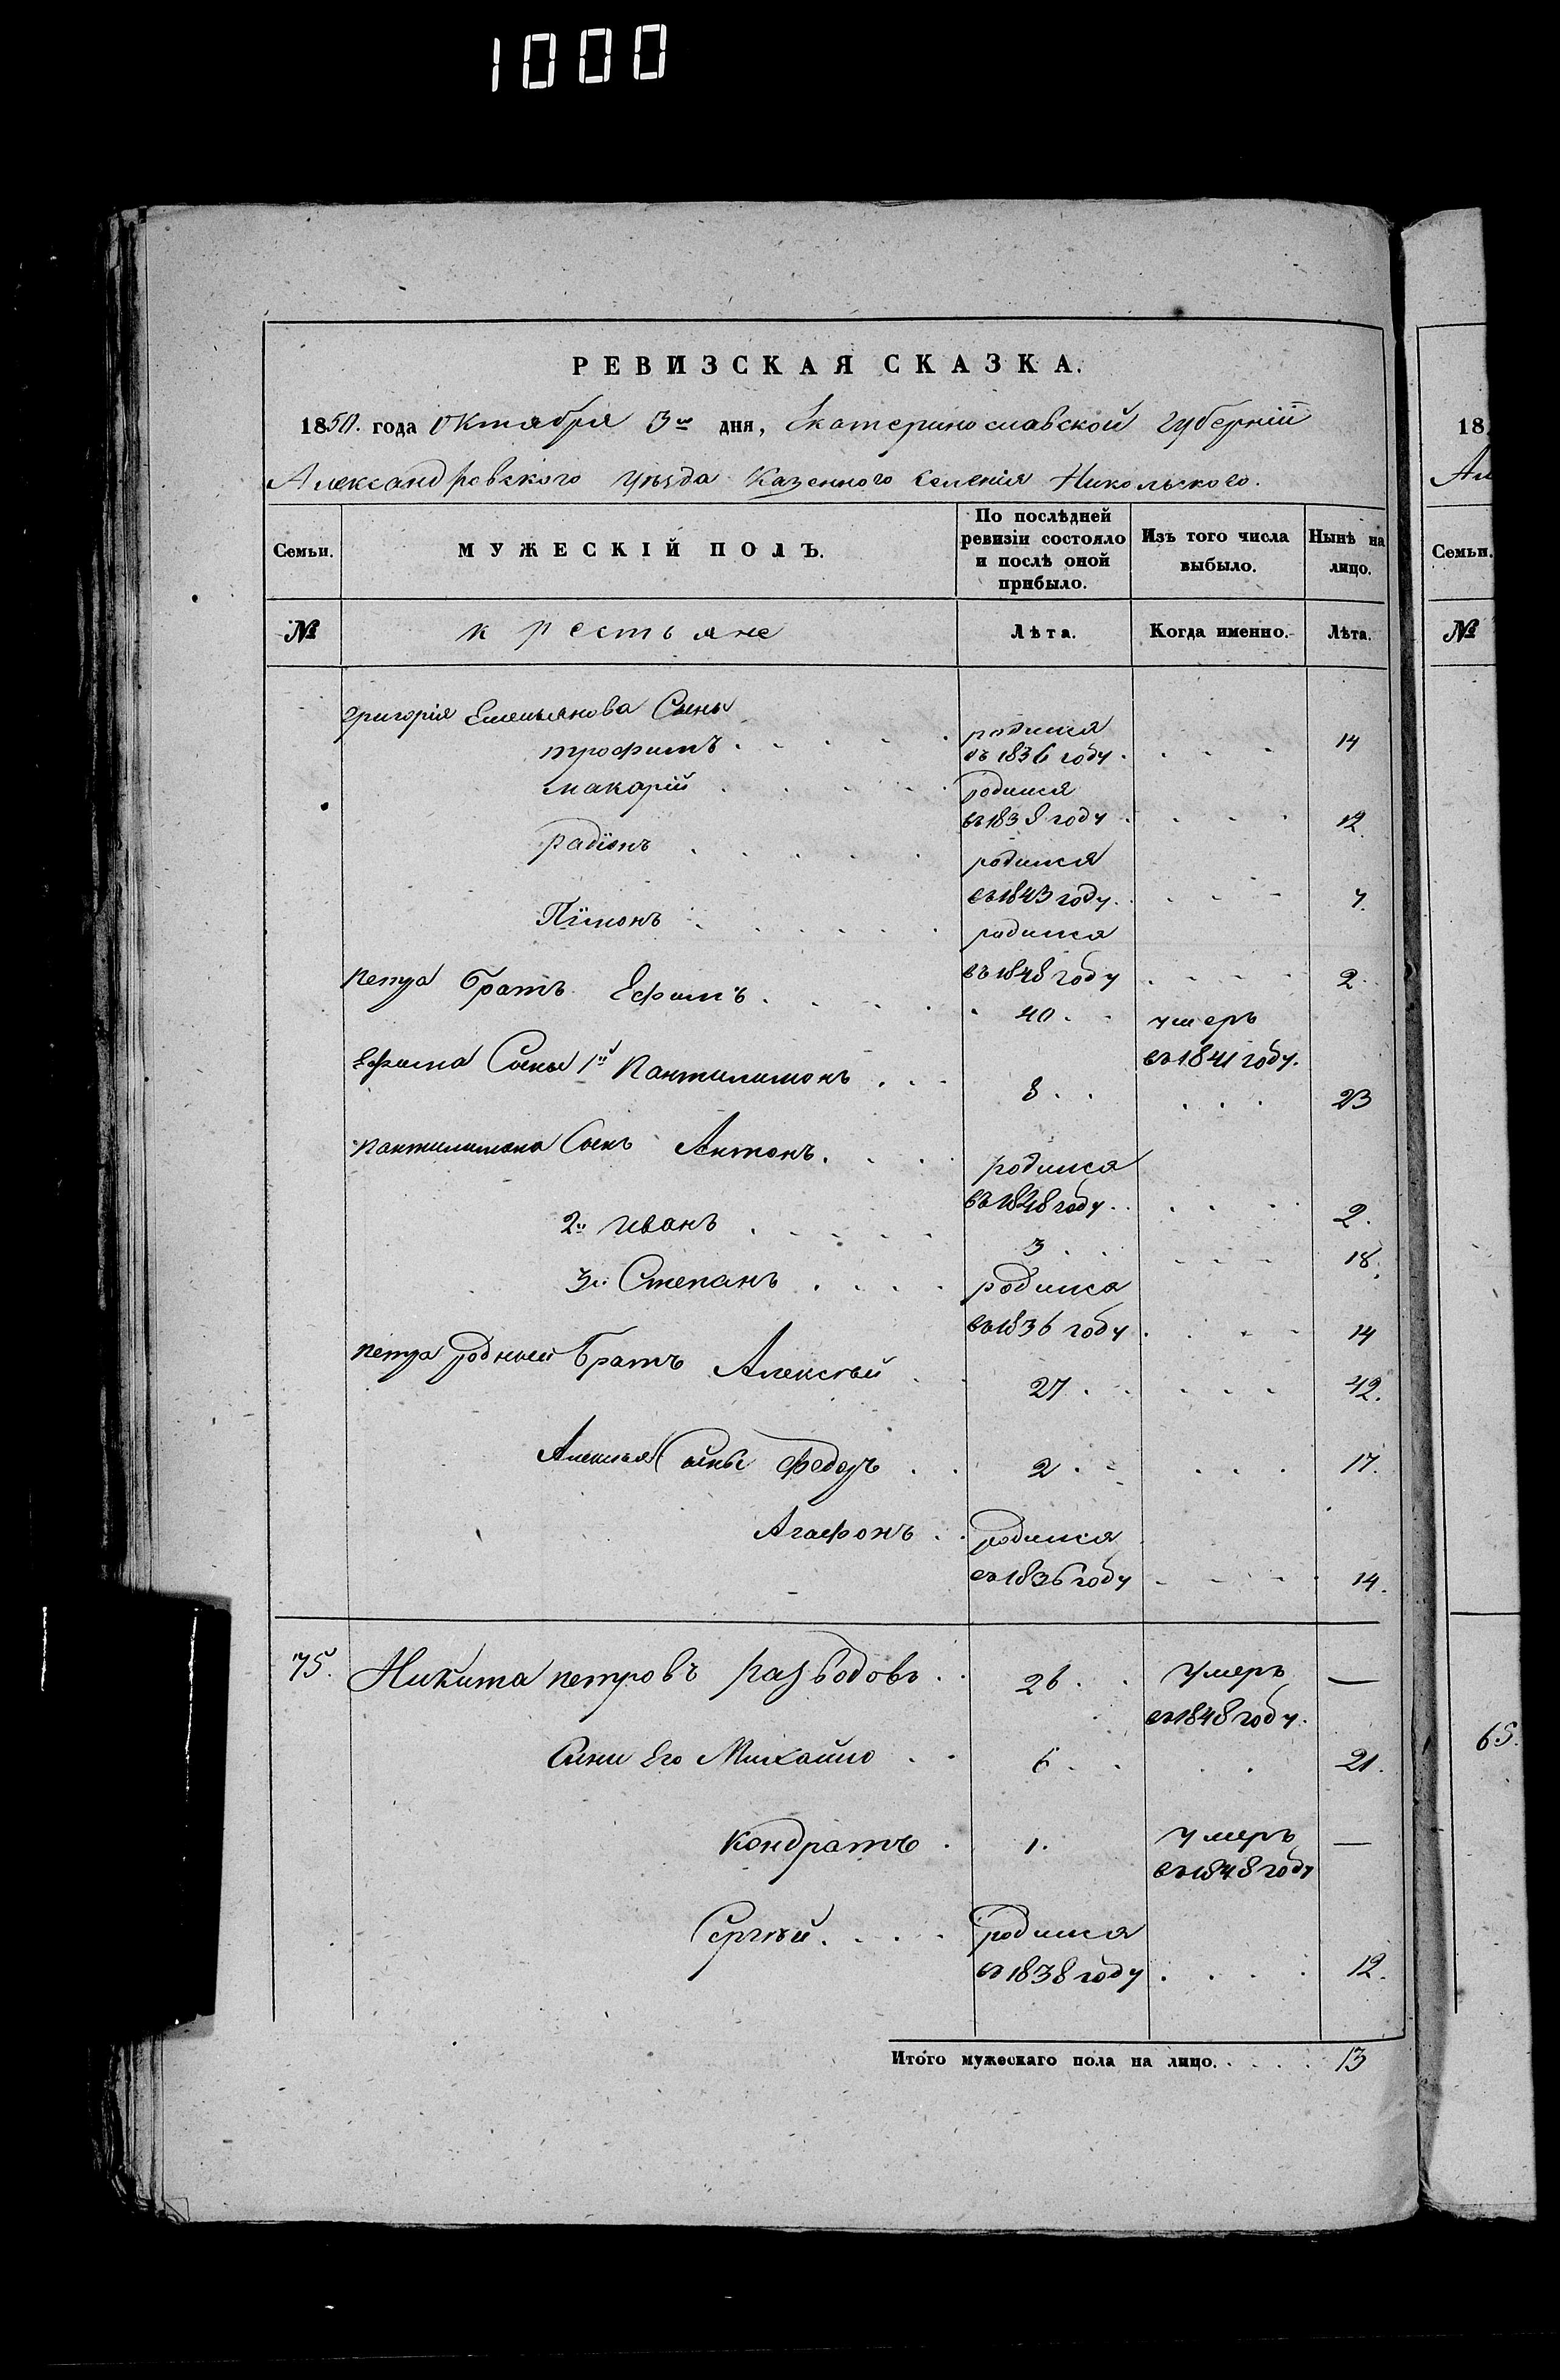 1000
РЕВИЗСКАЯ СКАЗКА.
1850. года Октября 3го дня, Екатеринославской губерніи
Александровского уѣзда Казенного Селенія Никольского.
Семьи. МУЖЕСКІЙ ПОЛЪ. По послѣдней ревизіи состояло и послѣ оной прибыло. Изъ того числа выбыло. Нынѣ на лицо.
№ крестьяне Лѣта. Когда именно. Лѣта.
григорія Емельянова Сыны
трофимъ родился въ 1836 году 14
макарій родился въ 1838 году 12.
радіонъ родился въ 1843 году 7.
Пімонъ родился въ 1848 году 2.
петра братъ Ефимъ 40 умеръ въ 1841 году.
Ефима Сыны 1й Пантилимонъ 8 23
пантилимона Сынъ Антонъ. родился въ 1848 году 2.
2й иванъ 3 18.
3й Степанъ родился въ 1836 году 14
петра родный братъ Алексѣй 27 42.
Алексѣя Сыны федоръ 2 17.
Агафонъ родился въ 1836 году 14.
75. Никита петровъ разводовъ 26 умеръ въ 1848 году. —
Сини Его Михайло 6 21.
Кондратъ 1. умеръ въ 1848 году —
Сергѣй родился въ 1838 году 12.
Итого мужескаго пола на лицо. 13
18
Ал
Семьи.
№
65.